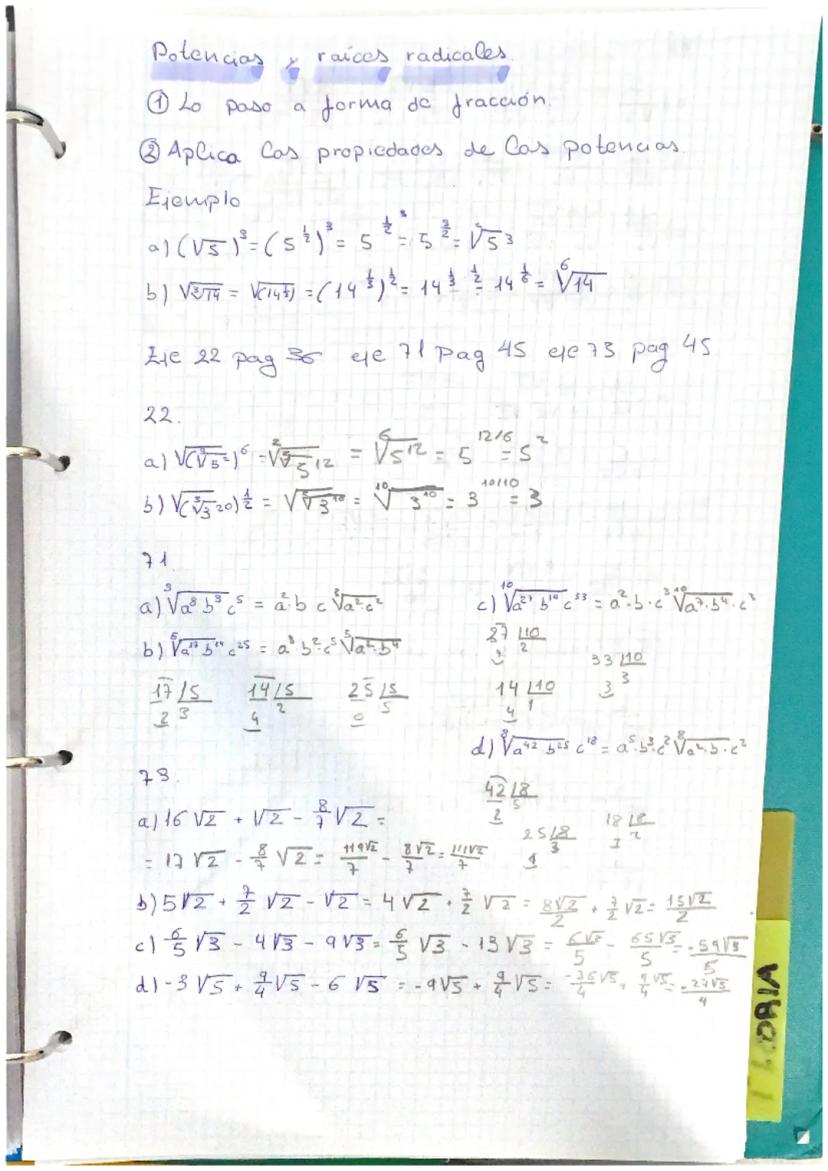 Potencias y raíces radicales.
① Lo paso a forma de fracción.
② Aplica las propiedades de las potencias.
Ejemplo
a) (√5)³ = (5^½)³ = 5^(½·³) = 5^(3/2) = ²√5³
b) √∛14 = √(14^⅓) = (14^⅓)^½ = 14^(⅓·½) = 14^(1/6) = ⁶√14
Eje 22 pag 36 eje 71 pag 45 eje 73 pag 45
22.
a) √(∛5²)⁶ = ²√∛5¹² = ⁶√5¹² = 5^(12/6) = 5²
71
a) ∛a⁸ b³ c⁵ = a²·b c ∛a²·c²
b) ⁵√a¹⁷ b¹⁴ c²⁵ = a³·b²·c⁵ ⁵√a²·b⁴
17 |5 14 |5 25 |5
2 3 4 2 0 5
c) ¹⁰√a²⁷ b¹⁴ c³³ = a²·b·c³ ¹⁰√a⁷·b⁴·c³
27 |10
7 2
33 |10
3 3
14 |10
4 1
d) ⁸√a⁴² b²⁵ c¹⁸ = a⁵·b³·c² ⁸√a²·b·c²
42 |8
2 5
25 |8
1 3
18 |8
2
73.
a) 16√2 + √2 - 8/7 √2 =
= 17√2 - 8/7 √2 = 119√2/7 - 8√2/7 = 111√2/7
b) 5√2 + 7/2 √2 - √2 = 4√2 + 7/2 √2 = 8√2/2 + 7/2 √2 = 15√2/2
c) 6/5 √3 - 4√3 - 9√3 = 6/5 √3 - 13√3 = 6√3/5 - 65√3/5 = -59√3/5
d) -3√5 + 9/4 √5 - 6√5 = -9√5 + 9/4 √5 = -36√5/4 + 9/4 √5 = -27√5/4